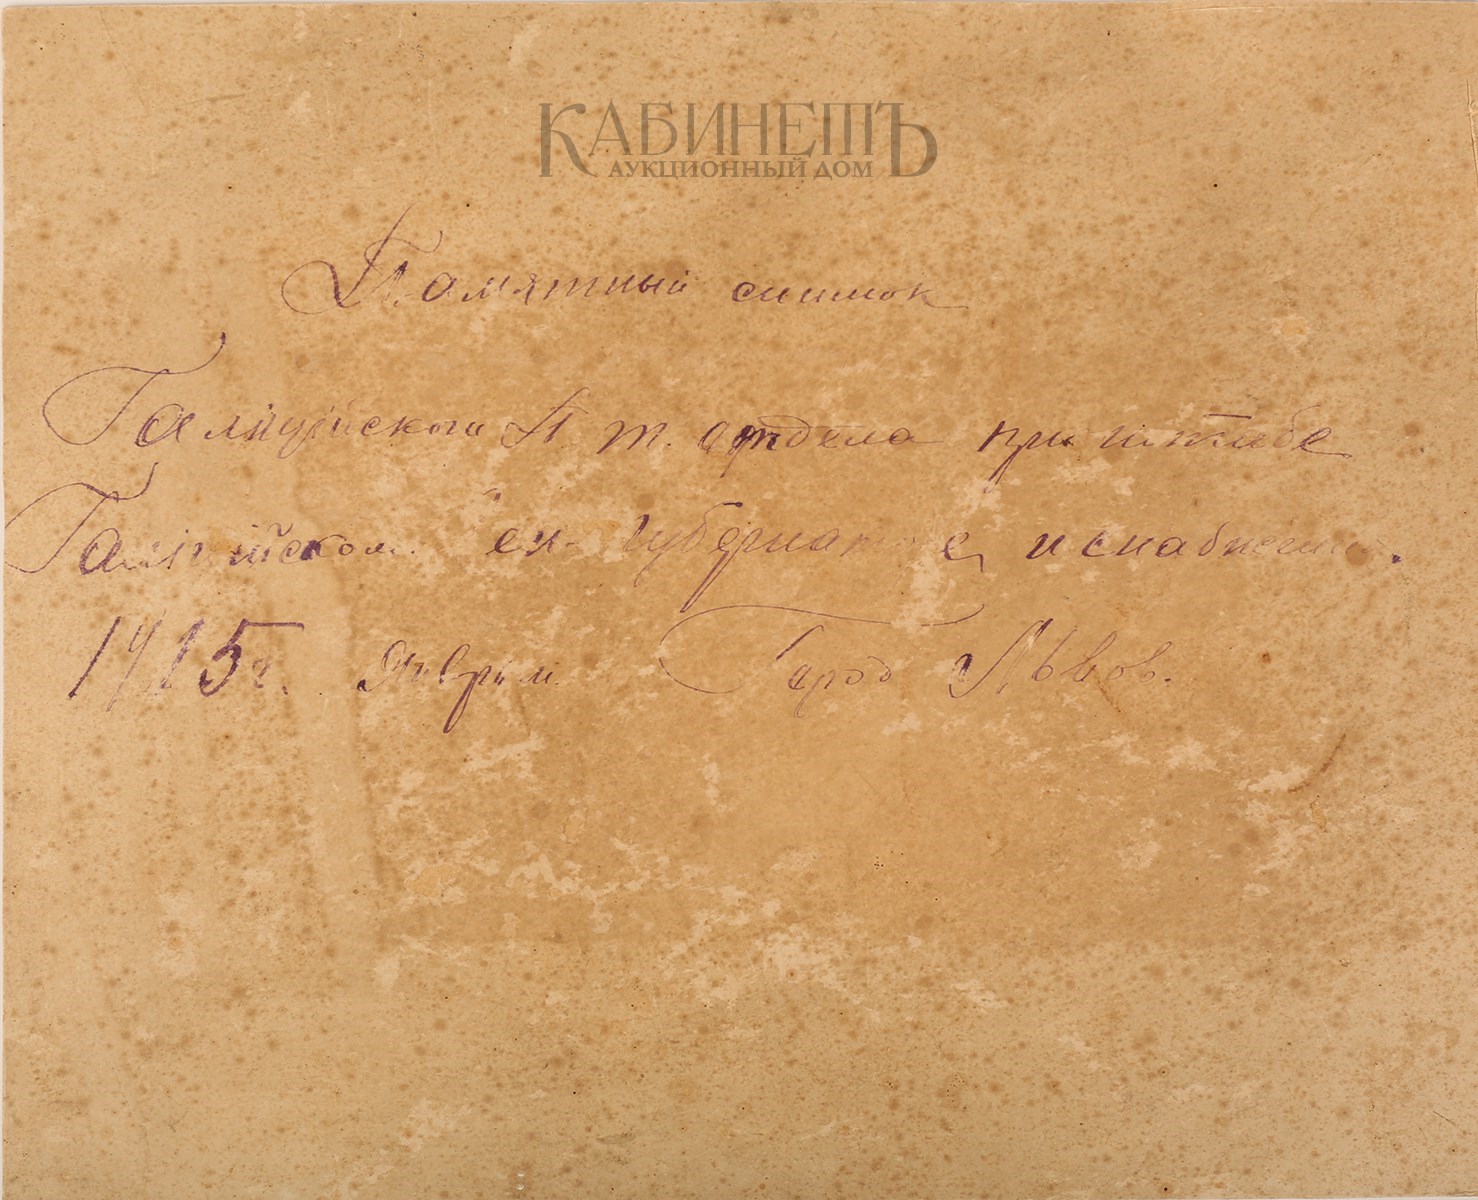 КАБИНЕТЪ
АУКЦИОННЫЙ ДОМ
Памятный снимок
Галицийского п. т. отдела при штабе
Галицийском ен-губернаторе и снабжению.
1915 г. Январ Город Львов.